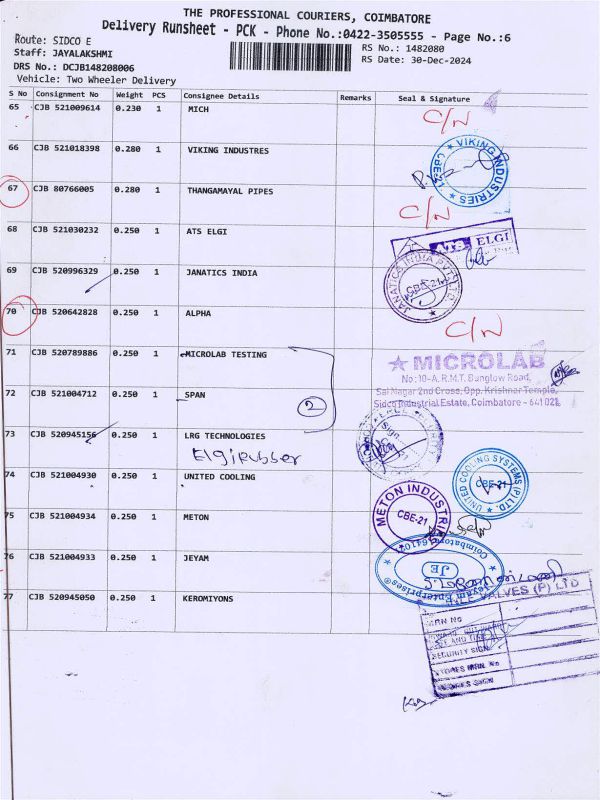 THE PROFESSIONAL COURIERS, COIMBATORE
Delivery Runsheet - PCK - Phone No.:0422-3505555 - Page No.:6
Route: SIDCO E
Staff: JAYALAKSHMI
DRS No.: DCJB148208006
Vehicle: Two Wheeler Delivery
RS No.: 1482080
RS Date: 30-Dec-2024
S No Consignment No Weight PCS Consignee Details Remarks Seal & Signature
65 CJB 521009614 0.230 1 MICH
C/N
66 CJB 521018398 0.280 1 VIKING INDUSTRES
VIKING INDUSTRIES
CBE-21
67 CJB 80766005 0.280 1 THANGAMAYAL PIPES
C/N
68 CJB 521030232 0.250 1 ATS ELGI
ATS ELGI
69 CJB 520996329 0.250 1 JANATICS INDIA
JANATICS INDIA PVT LTD
CBE-21
70 CJB 520642828 0.250 1 ALPHA
C/N
71 CJB 520789886 0.250 1 MICROLAB TESTING
MICROLAB
No:10-A, R.M.T. Bunglow Road,
Sai Nagar 2nd Cross, Opp. Krishnar Temple,
Sidco Industrial Estate, Coimbatore - 641 021.
72 CJB 521004712 0.250 1 SPAN
2
73 CJB 520945156 0.250 1 LRG TECHNOLOGIES
Elgirubber
74 CJB 521004930 0.250 1 UNITED COOLING
UNITED COOLING SYSTEMS (P) LTD
CBE-21
75 CJB 521004934 0.250 1 METON
METON INDUSTRIES
CBE-21
76 CJB 521004933 0.250 1 JEYAM
Jeyam Enterprises
Coimbatore 641021
JE
77 CJB 520945050 0.250 1 KEROMIYONS
VALVES (P) LTD
MRN No
SECURITY SIGN
STORES MRN. No
STORES SIGN